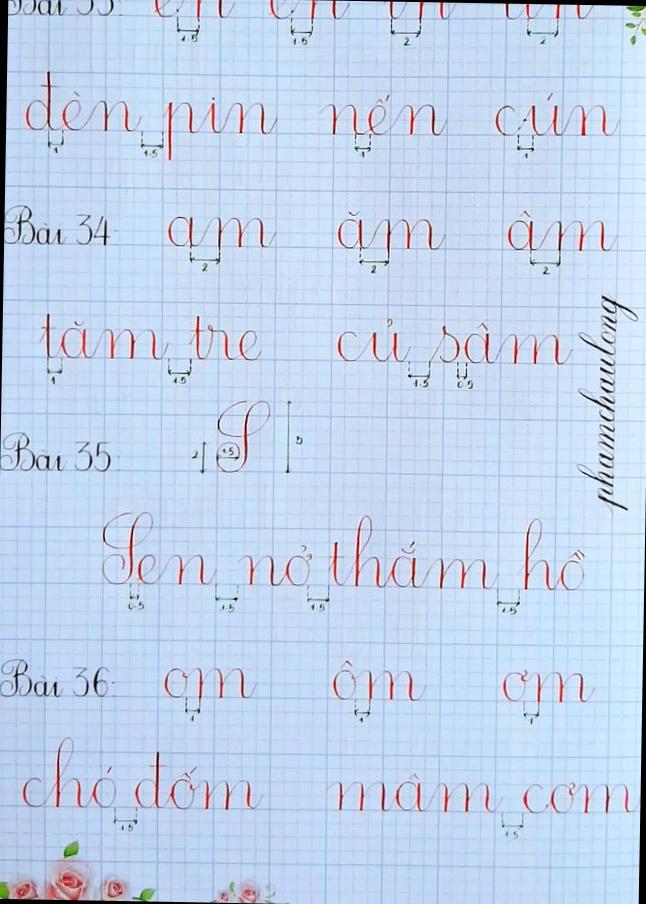 Bài 33
1.5 1.5 2 2
đèn pin nến cún
1 1.5 1 1
Bài 34: am ăm âm
2 2 2
tăm tre củ sâm
1 1.5 1.5 0.5
Bài 35: S
2 1.5 5
Sen nở thắm hồ
0.5 1.5 1.5 1.5
Bài 36: om ôm ơm
1 1 1
chó đốm mâm cơm
1.5 1.5
phamchaulong